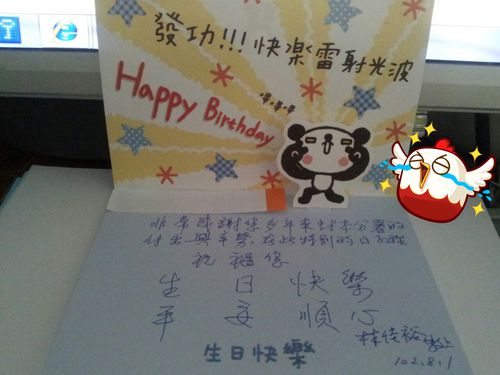 發功!!! 快樂雷射光波
Happy Birthday
非常感謝您多年來對本分署的
付出與辛勞,在此特別的日子裡
祝福您
生日快樂
平安順心
林佳裕敬上
102.8.1
生日快樂